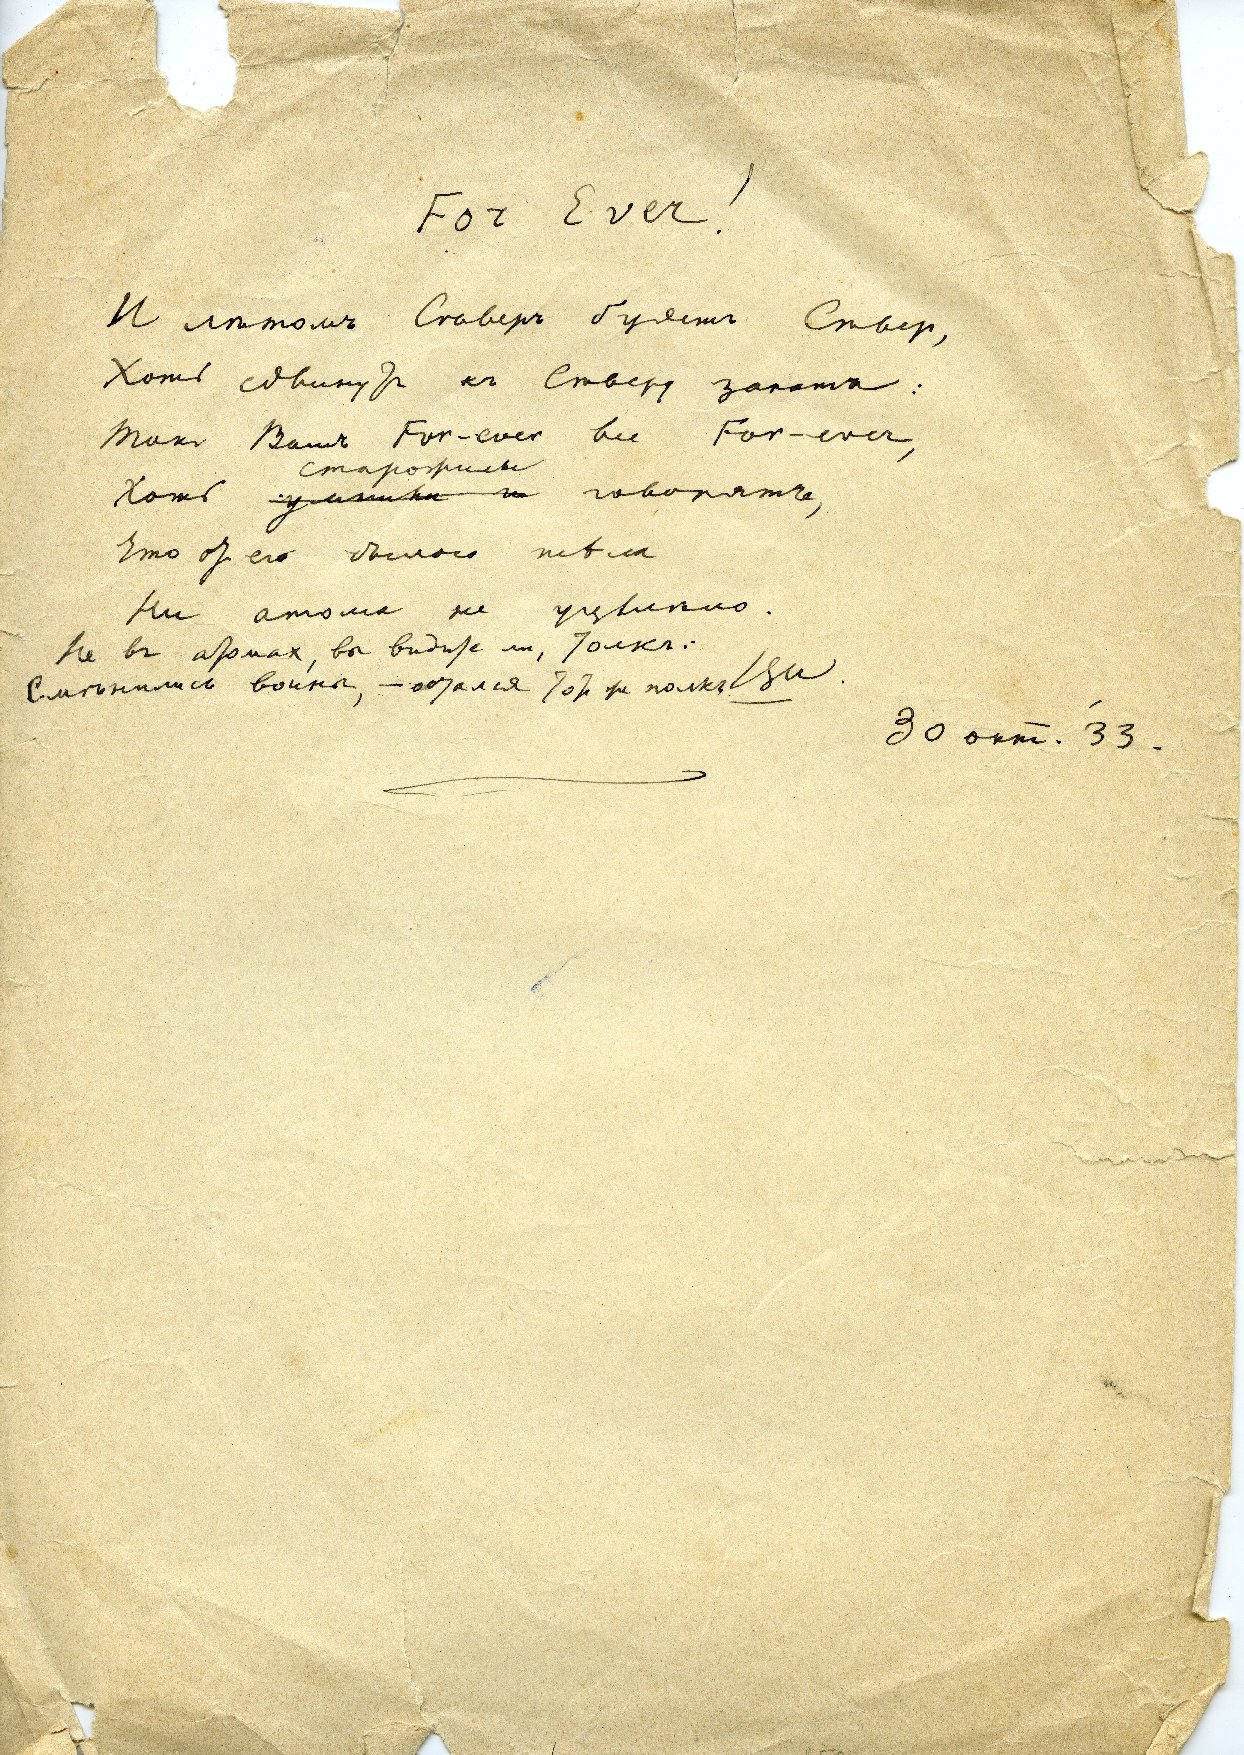 For Ever!
И лѣтомъ Сѣверъ будетъ Сѣвер,
Хоть сдвинут къ Сѣверу закатъ:
Такъ Вашъ For-ever все For-ever,
старожилы
Хоть говорятъ,
Что от его былого
Ни атома не уцѣлѣло.
Не въ атомах, вы видите ли, толкъ:
Смѣнились войны, — остался тот же полкъ
30 окт. '33.